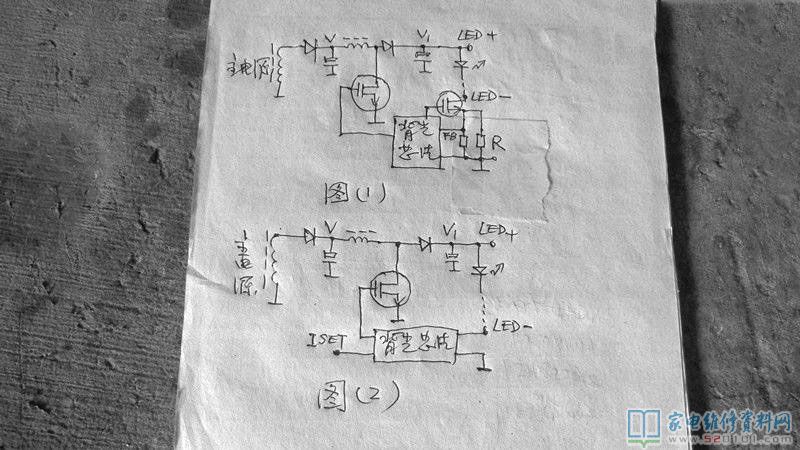 V V₁ LED+
主电源
LED-
背光芯片 FB R
图(1)
V V₁ LED+
主电源
LED-
ISET 背光芯片
图(2)
家电维修资料网
www.520101.com